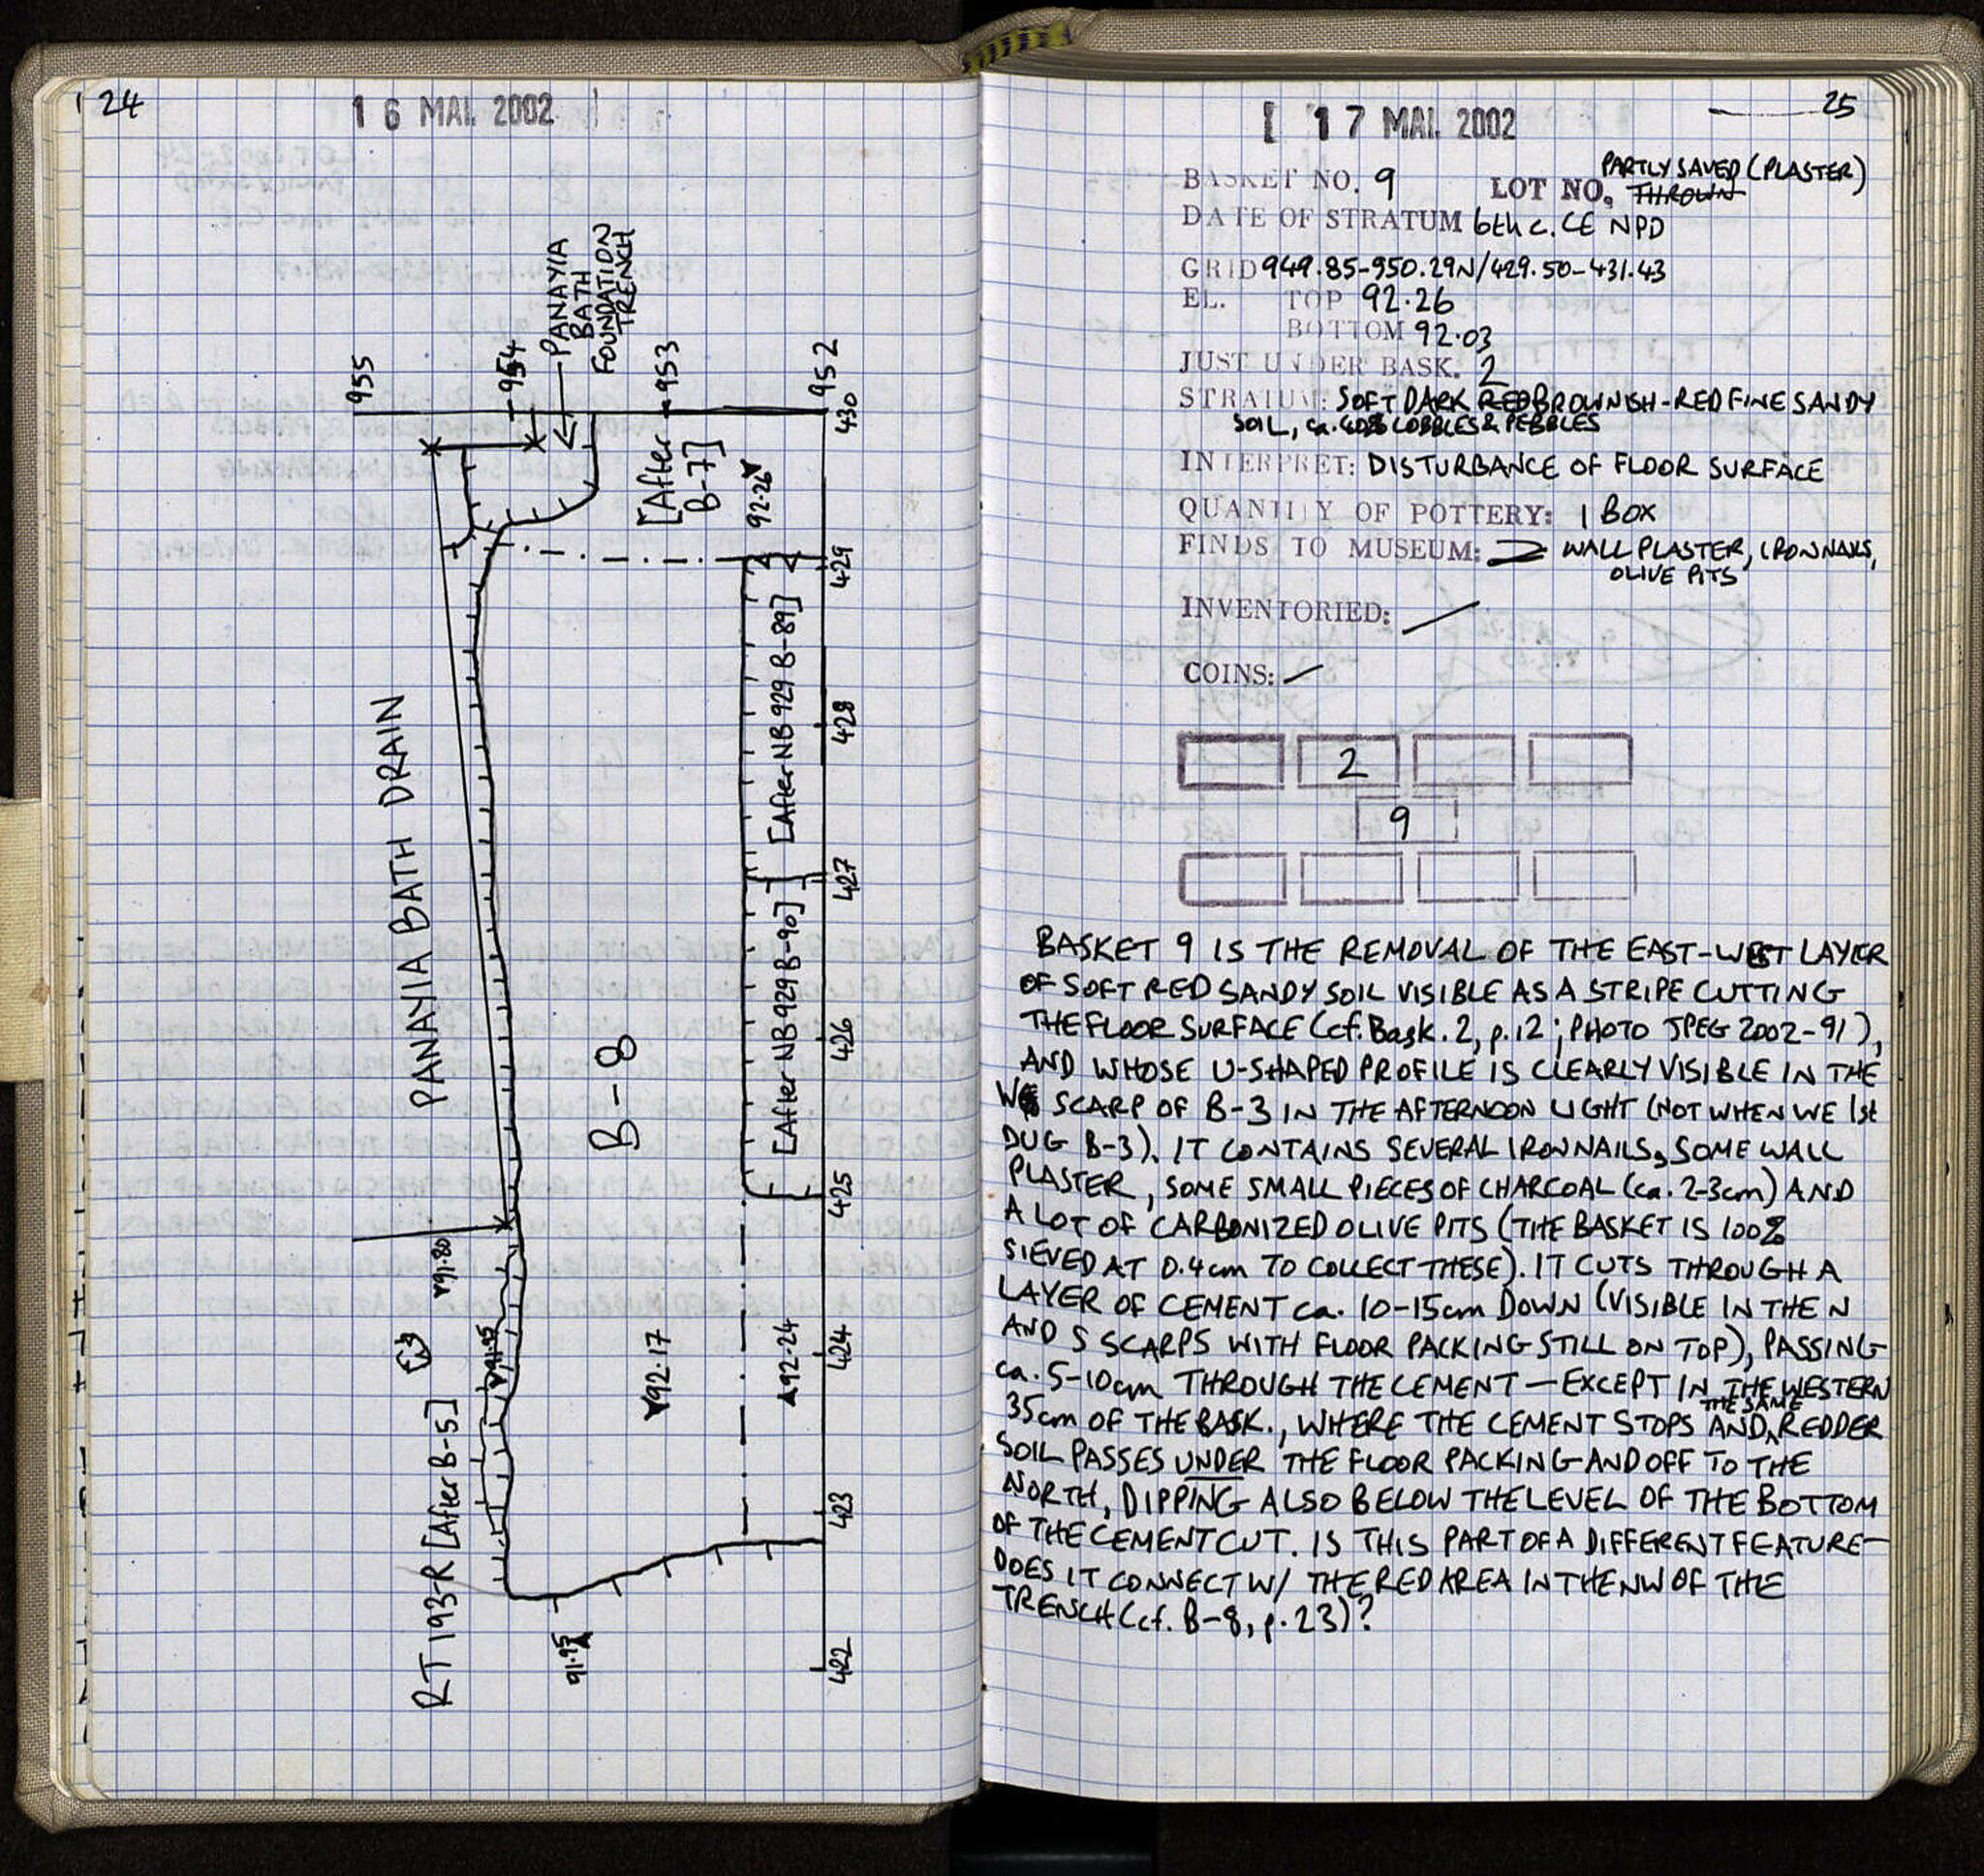 24
16 MAI 2002
955
954
PANAYIA
BATH
FOUNDATION
TRENCH
953
952
430
[After
B-7]
92.26
429
[After NB 929 B-89]
428
PANAYIA BATH DRAIN
427
B-8
[After NB 929 B-90]
426
425
91.80
92.17
92.24
424
RT 193-R [After B-5]
423
91.95
422
25
17 MAI 2002
PARTLY SAVED (PLASTER)
BASKET NO. 9 LOT NO. THROWN
DATE OF STRATUM 6th c. CE NPD
GRID 949.85-950.29N/429.50-431.43
EL. TOP 92.26
BOTTOM 92.03
JUST UNDER BASK. 2
STRATUM: SOFT DARK RED BROWNISH-RED FINE SANDY
SOIL, ca. 40% COBBLES & PEBBLES
INTERPRET: DISTURBANCE OF FLOOR SURFACE
QUANTITY OF POTTERY: 1 BOX
FINDS TO MUSEUM: WALL PLASTER, IRON NAILS,
OLIVE PITS
INVENTORIED: /
COINS: /
2
9
BASKET 9 IS THE REMOVAL OF THE EAST-WEST LAYER
OF SOFT RED SANDY SOIL VISIBLE AS A STRIPE CUTTING
THE FLOOR SURFACE (cf. Bask. 2, p. 12; PHOTO JPEG 2002-91),
AND WHOSE U-SHAPED PROFILE IS CLEARLY VISIBLE IN THE
W SCARP OF B-3 IN THE AFTERNOON LIGHT (NOT WHEN WE 1st
DUG B-3). IT CONTAINS SEVERAL IRON NAILS, SOME WALL
PLASTER, SOME SMALL PIECES OF CHARCOAL (ca. 2-3cm) AND
A LOT OF CARBONIZED OLIVE PITS (THE BASKET IS 100%
SIEVED AT 0.4cm TO COLLECT THESE). IT CUTS THROUGH A
LAYER OF CEMENT ca. 10-15cm DOWN (VISIBLE IN THE N
AND S SCARPS WITH FLOOR PACKING STILL ON TOP), PASSING
ca. 5-10cm THROUGH THE CEMENT — EXCEPT IN THE WESTERN
35cm OF THE BASK., WHERE THE CEMENT STOPS AND THE SAME REDDER
SOIL PASSES UNDER THE FLOOR PACKING AND OFF TO THE
NORTH, DIPPING ALSO BELOW THE LEVEL OF THE BOTTOM
OF THE CEMENT CUT. IS THIS PART OF A DIFFERENT FEATURE—
DOES IT CONNECT W/ THE RED AREA IN THE NW OF THE
TRENCH (cf. B-8, p. 23)?